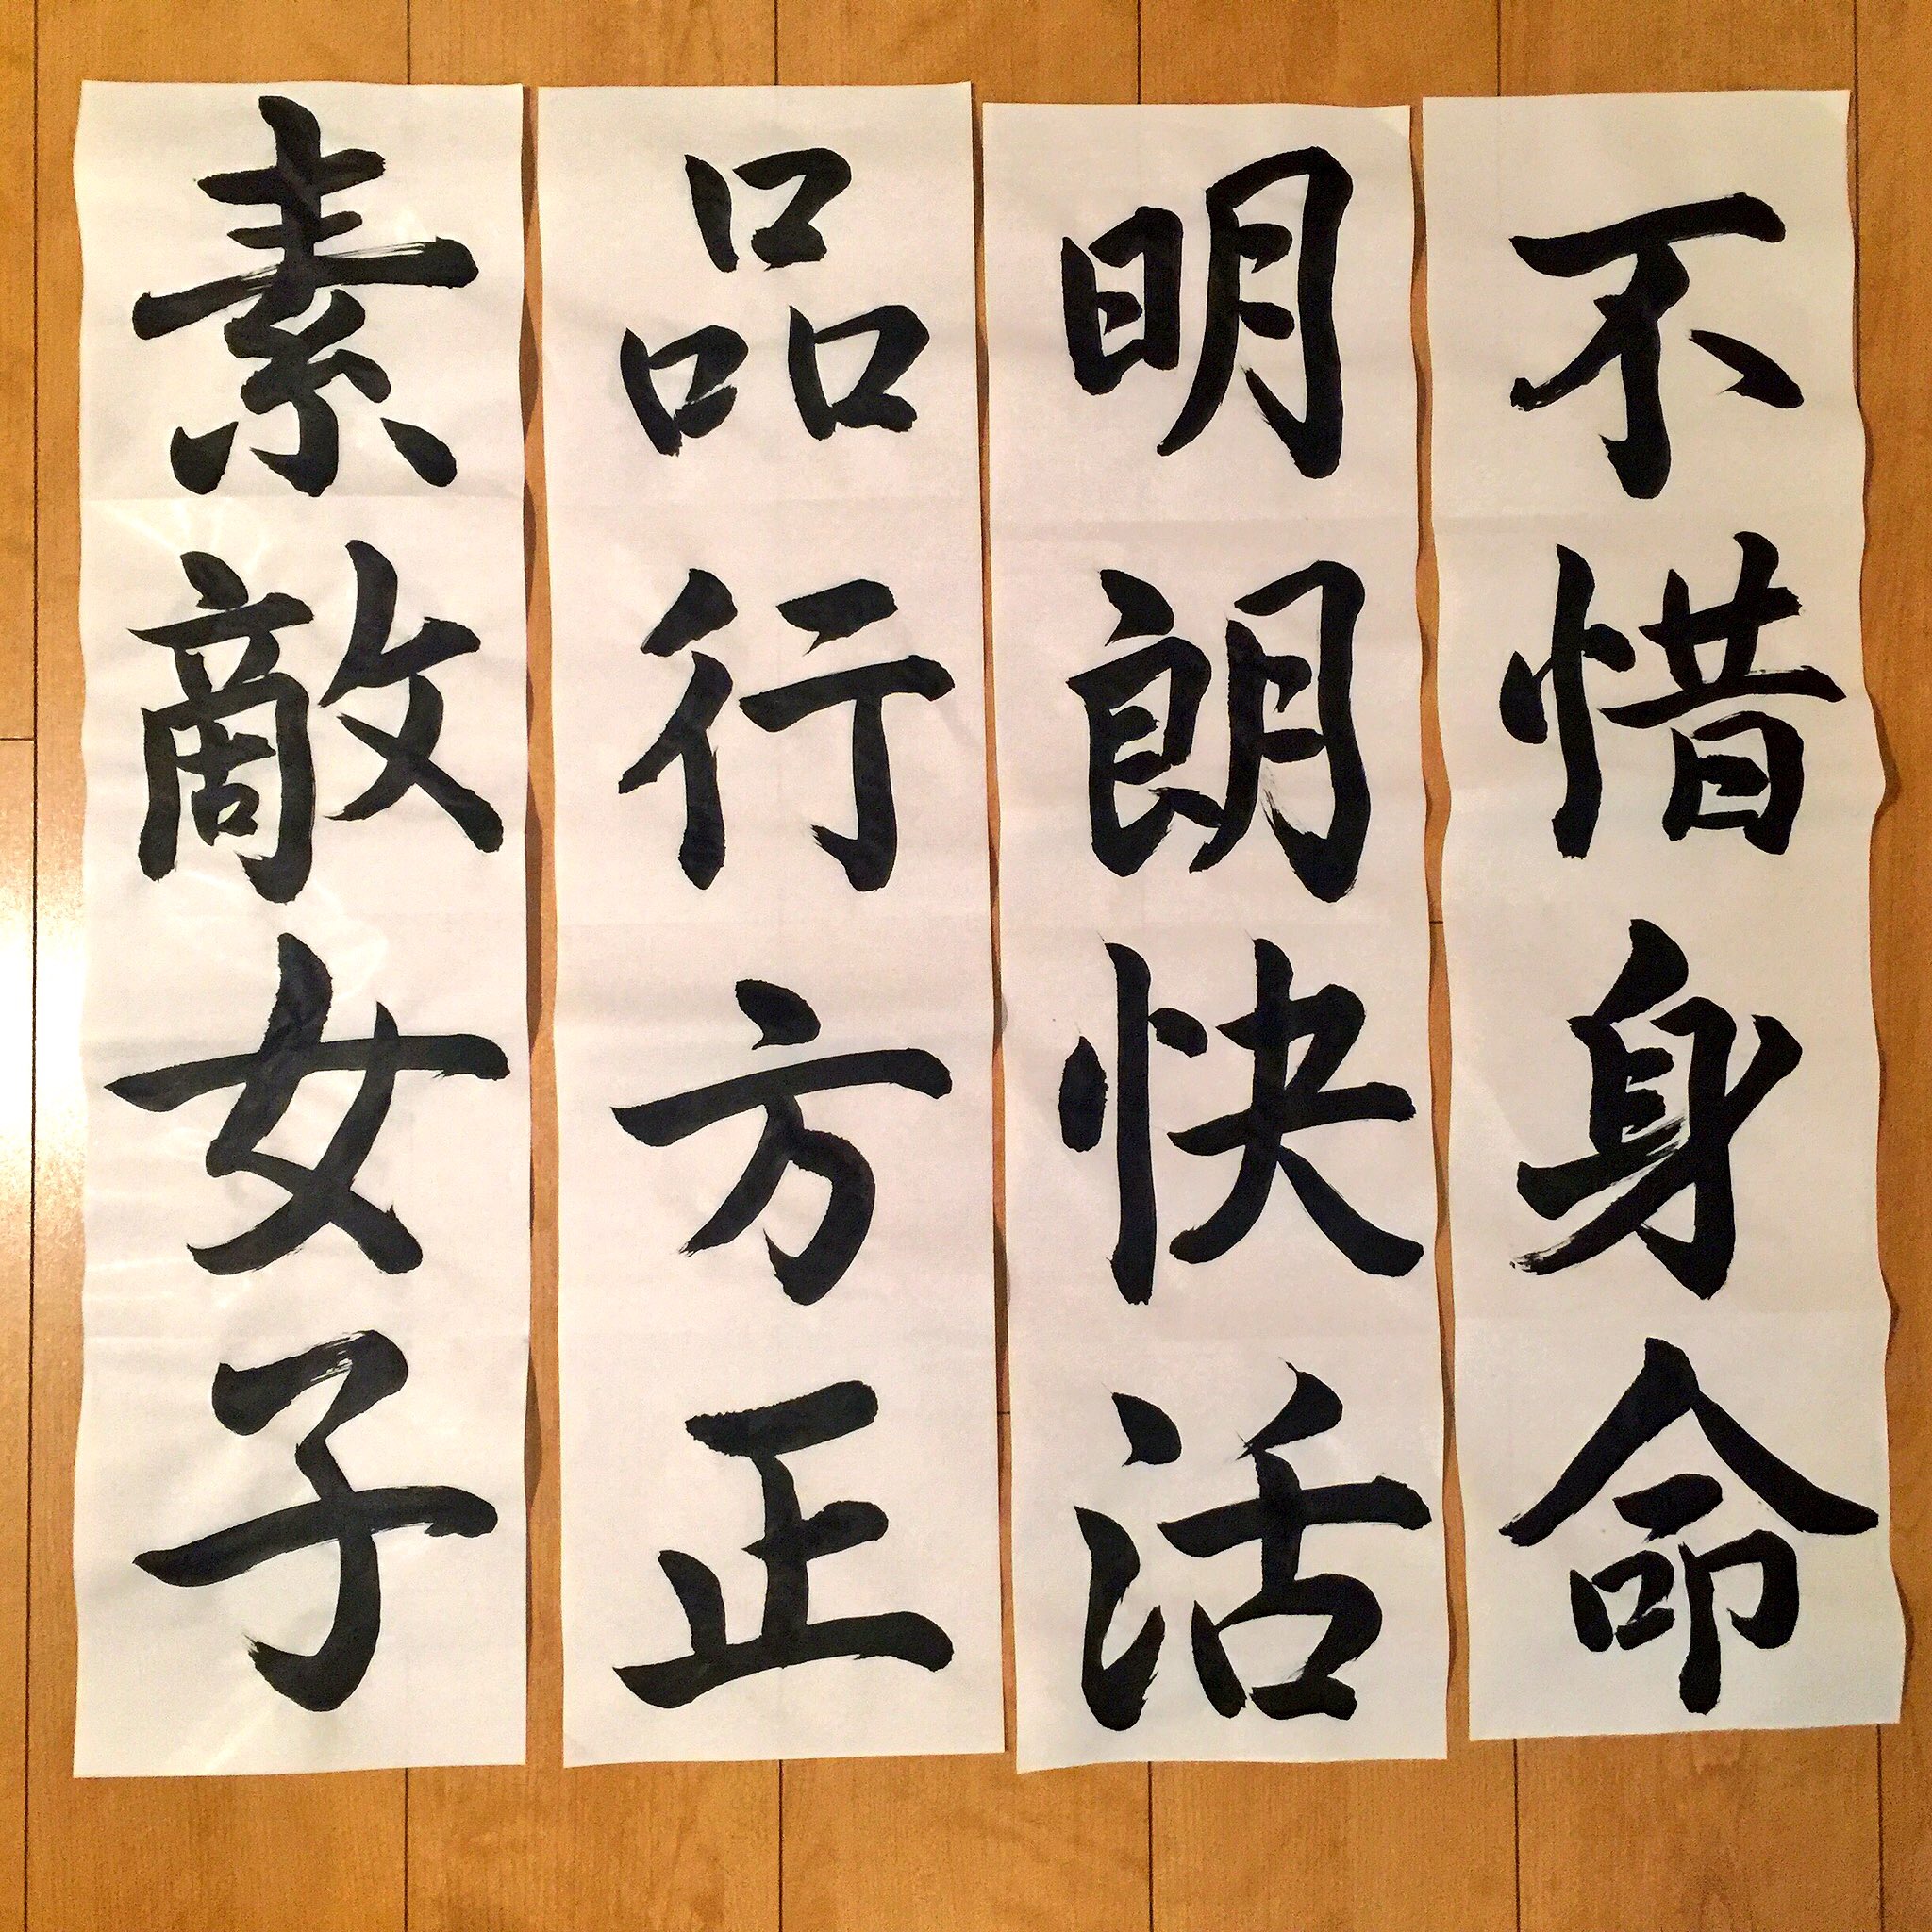 不惜身命
明朗快活
品行方正
素敵女子